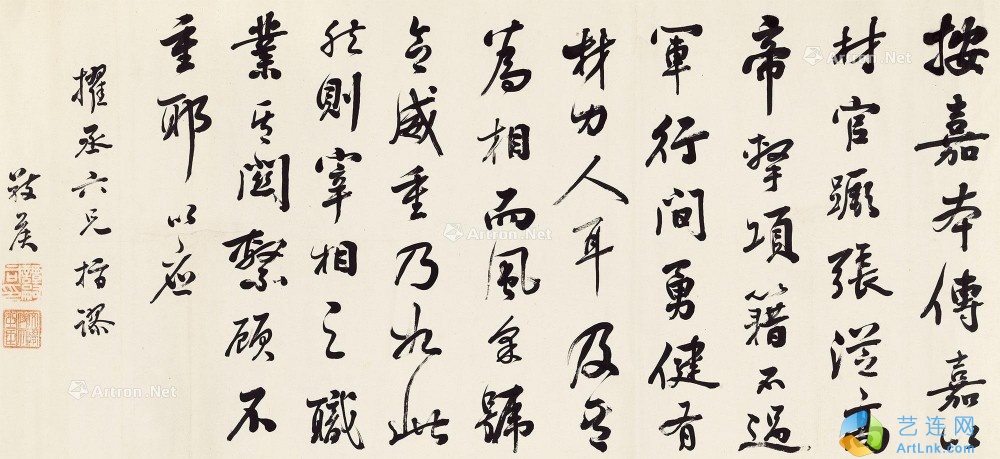 按嘉本傳嘉以
材官蹶張從高
帝擊項籍不過
軍行間勇健有
材力人耳及其
為相而風采號
令威重乃如此
然則宰相之職
業其關繫顧不
重耶 以應
擢丞六兄指謬
Artron.Net
Artron.Net
Artron.Net
Artron.Net
Artron.Net
艺连网
ArtLnk.com